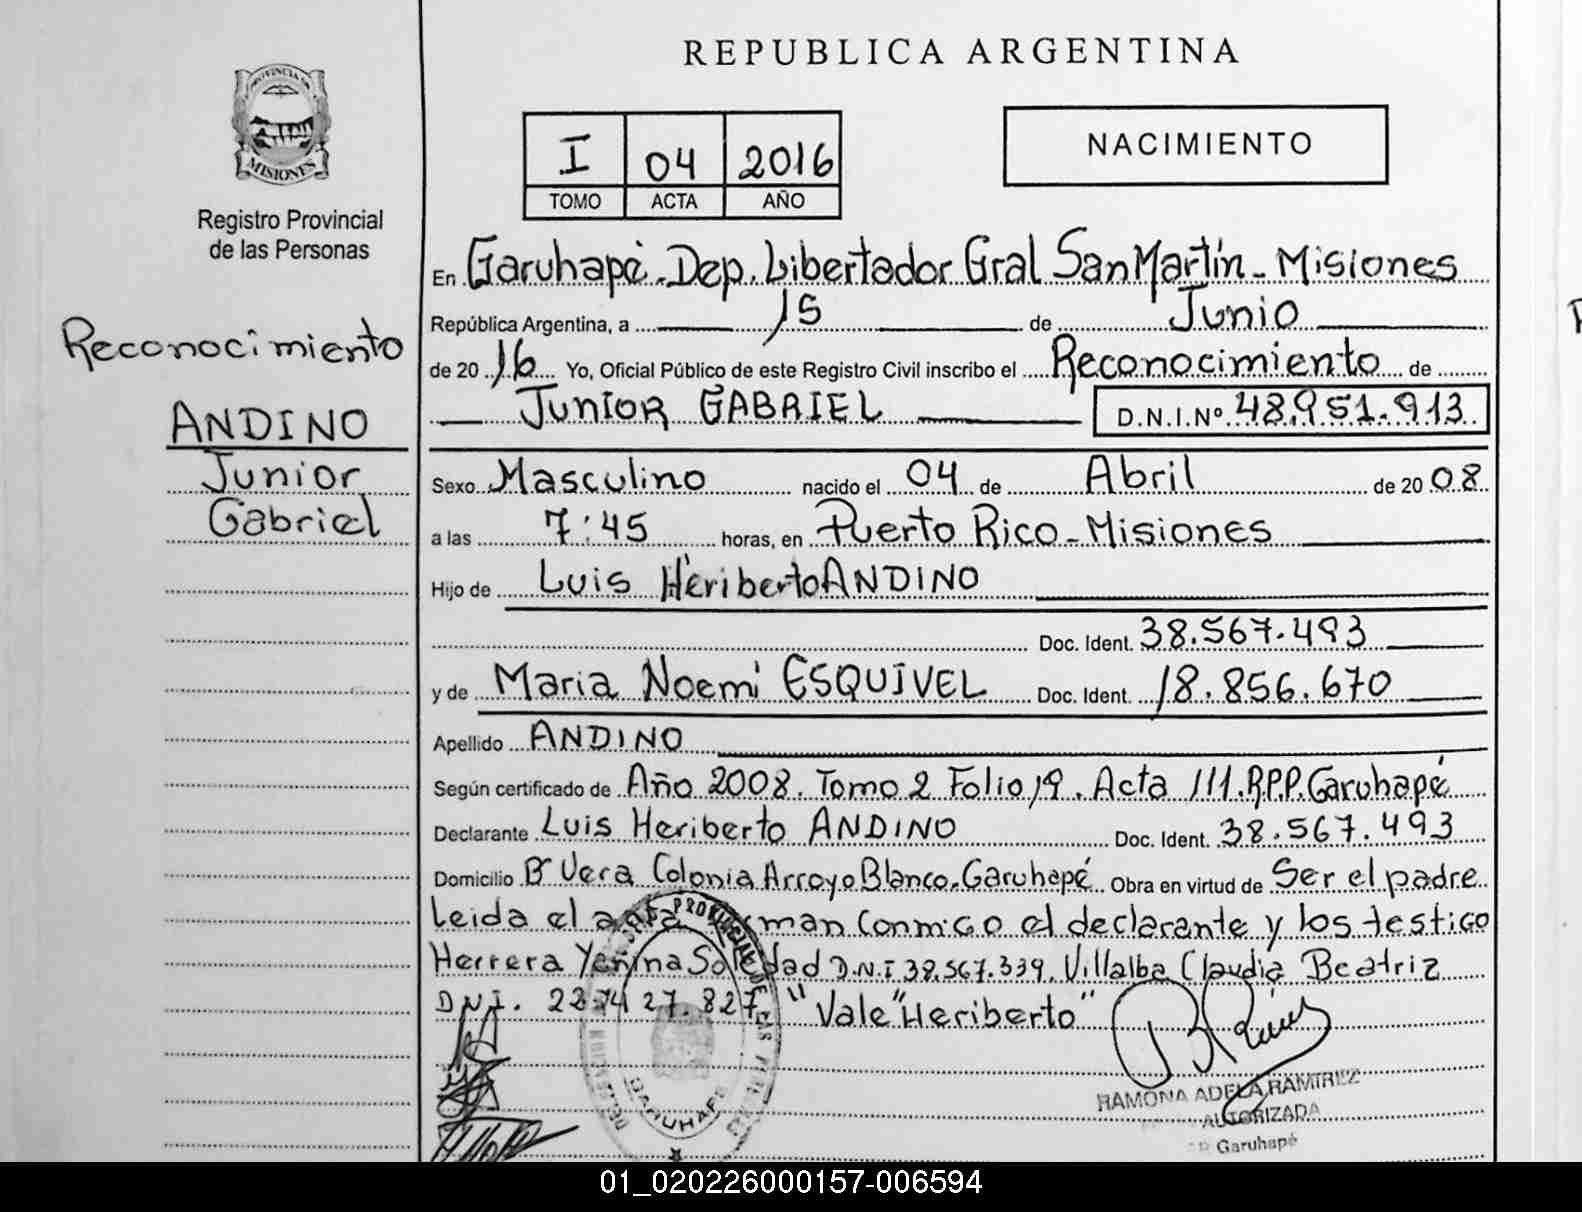 REPUBLICA ARGENTINA
PROVINCIA DE
MISIONES
Registro Provincial
de las Personas
I 04 2016
TOMO ACTA AÑO
NACIMIENTO
Reconocimiento
ANDINO
Junior
Gabriel
En Garuhapé. Dep. Libertador Gral San Martín - Misiones
República Argentina, a 15 de Junio
de 2016 Yo, Oficial Público de este Registro Civil inscribo el Reconocimiento de
JUNIOR GABRIEL D.N.I.Nº 48.951.913
Sexo Masculino nacido el 04 de Abril de 2008
a las 7:45 horas, en Puerto Rico - Misiones
Hijo de Luis Heriberto ANDINO
Doc. Ident. 38.567.493
y de Maria Noemi ESQUIVEL Doc. Ident. 18.856.670
Apellido ANDINO
Según certificado de Año 2008. Tomo 2 Folio 19. Acta 111. R.P.P. Garuhapé
Declarante Luis Heriberto ANDINO Doc. Ident. 38.567.493
Domicilio Bº Vera Colonia Arroyo Blanco. Garuhapé Obra en virtud de Ser el padre
Leida el acta man Conmigo el declarante y los testigo
Herrera Yenina Soledad D.N.I 38.567.339. Villalba Claudia Beatriz
D.N.I. 22.427.827 "Vale "Heriberto"
PROVINCIAL DE LAS
GARUHAPE
RAMONA ADELA RAMIREZ
AUTORIZADA
Garuhapé
01_020226000157-006594